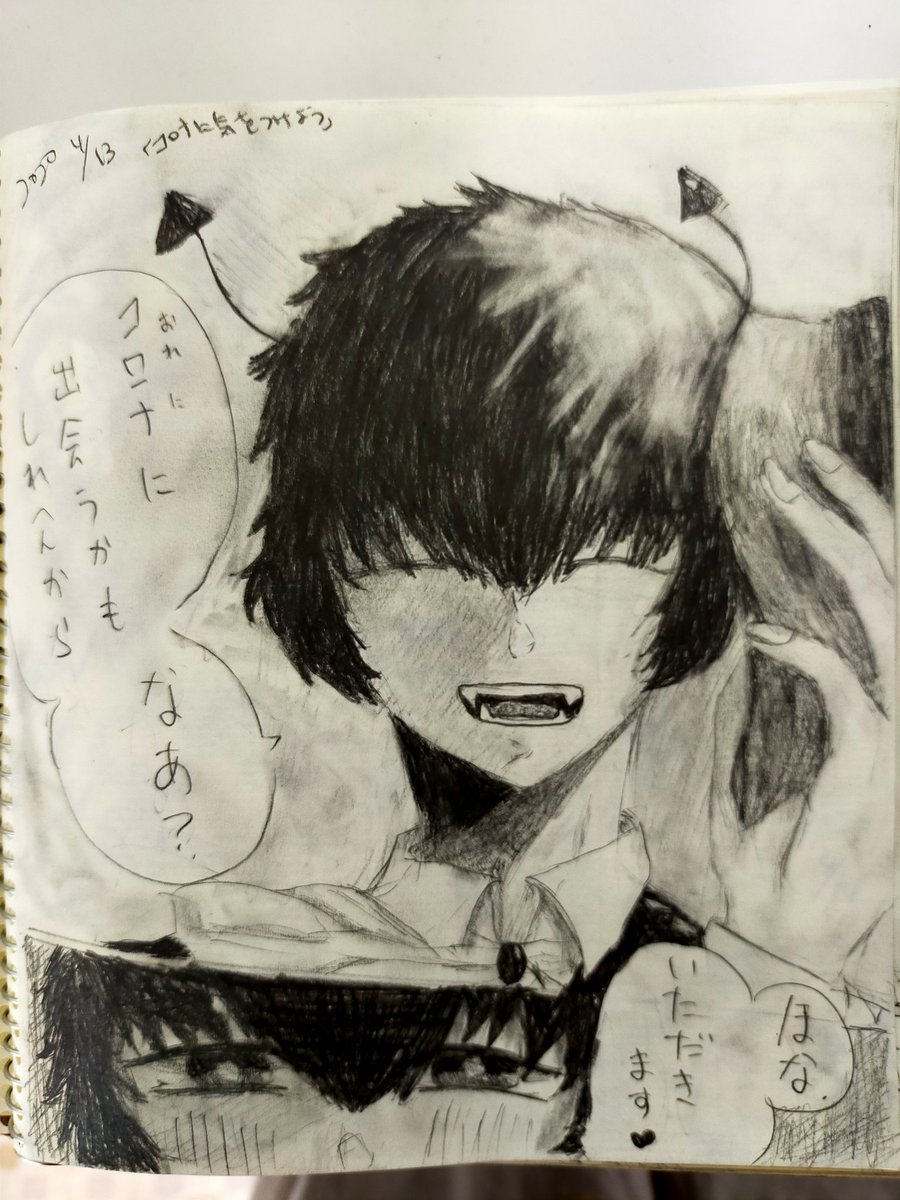 2020 4/13 「コロナに気をつけよう」
コロナに
おれに
出会うかも
しれへんから
なあ?
ほな.
いただき
ます♥